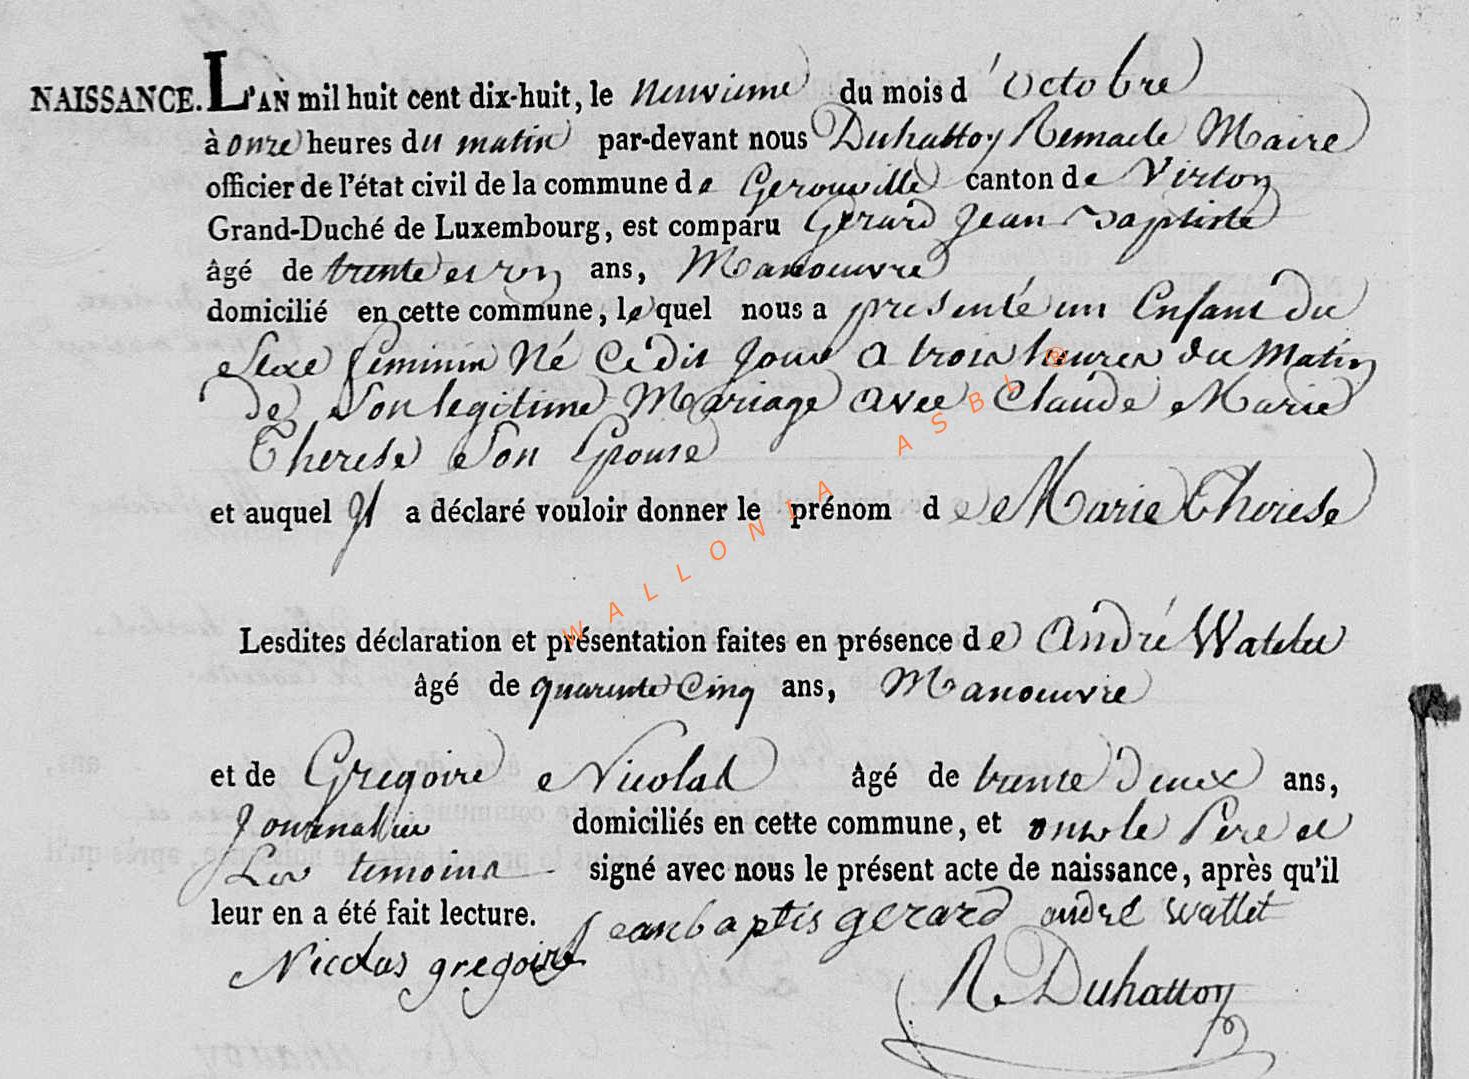 NAISSANCE. L'AN mil huit cent dix-huit, le neuvieme du mois d'octobre
à onze heures du matin par-devant nous Duhattoy Remacle Maire
officier de l'état civil de la commune de Gerouville canton de Virton
Grand-Duché de Luxembourg, est comparu Gerard Jean Baptiste
âgé de trente et un ans, Manoeuvre
domicilié en cette commune, lequel nous a presenté un Enfant du
Sexe feminin Né Cedit Jour a trois heures du Matin
De Son legitime Mariage avec Claude Marie
Therese Son Epouse
et auquel Il a déclaré vouloir donner le prénom de Marie Therese
WALLONIA ASBL ®
Lesdites déclaration et présentation faites en présence de André Watelet
âgé de quarente Cinq ans, Manoeuvre
et de Gregoire Nicolas âgé de trente Deux ans,
Journallier domiciliés en cette commune, et ont le Pere et
Les temoins signé avec nous le présent acte de naissance, après qu'il
leur en a été fait lecture. Jeanbaptis gerard andre watlet
Nicolas gregoire
R. Duhattoy